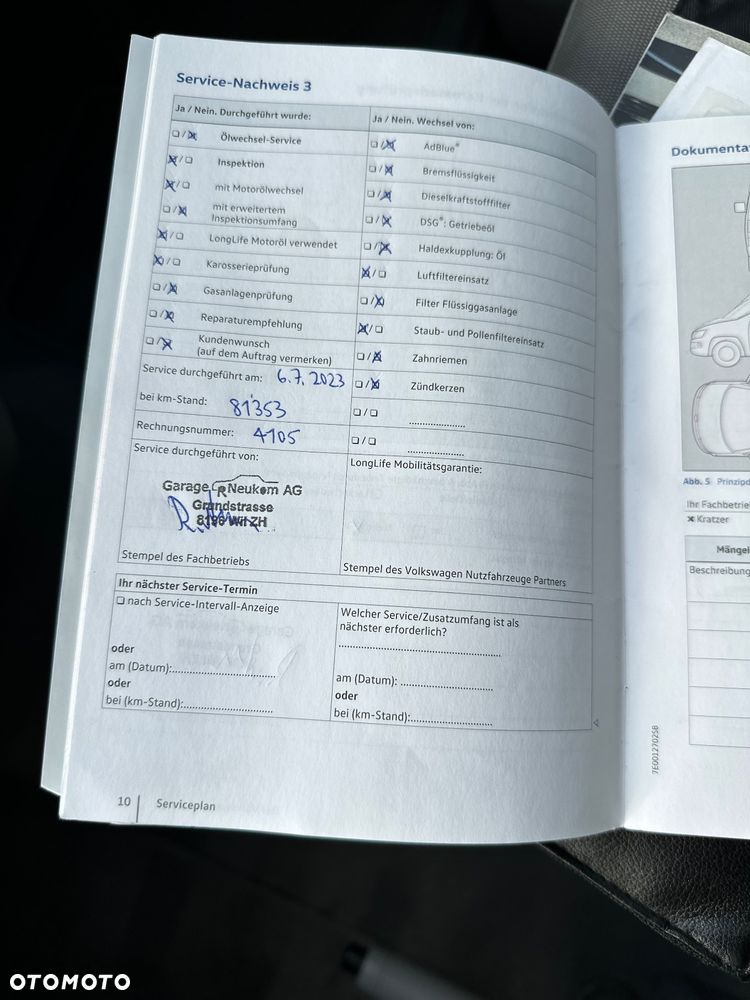 Service-Nachweis 3
Ja / Nein. Durchgeführt wurde:
❑ / ☒ Ölwechsel-Service
☒ / ❑ Inspektion
☒ / ❑ mit Motorölwechsel
❑ / ☒ mit erweitertem
Inspektionsumfang
☒ / ❑ LongLife Motoröl verwendet
☒ / ❑ Karosserieprüfung
❑ / ☒ Gasanlagenprüfung
❑ / ☒ Reparaturempfehlung
❑ / ☒ Kundenwunsch
(auf dem Auftrag vermerken)
Service durchgeführt am: 6.7.2023
bei km-Stand: 81'353
Rechnungsnummer: 4105
Service durchgeführt von:
Garage Neukom AG
Grundstrasse
8196 Wil ZH
Stempel des Fachbetriebs
Ja / Nein. Wechsel von:
❑ / ☒ AdBlue®
❑ / ☒ Bremsflüssigkeit
❑ / ☒ Dieselkraftstofffilter
❑ / ☒ DSG®: Getriebeöl
❑ / ☒ Haldexkupplung: Öl
☒ / ❑ Luftfiltereinsatz
❑ / ☒ Filter Flüssiggasanlage
☒ / ❑ Staub- und Pollenfiltereinsatz
❑ / ☒ Zahnriemen
❑ / ☒ Zündkerzen
❑ / ❑ ....................
❑ / ❑ ....................
LongLife Mobilitätsgarantie:
Stempel des Volkswagen Nutzfahrzeuge Partners
Ihr nächster Service-Termin
❑ nach Service-Intervall-Anzeige
oder
am (Datum):..............................
oder
bei (km-Stand):..........................
Welcher Service/Zusatzumfang ist als
nächster erforderlich?
................................................
am (Datum): ...........................
oder
bei (km-Stand):........................
10 Serviceplan
Dokumenta
Abb. 5 Prinzipd
Ihr Fachbetrie
✕ Kratzer
Mängel
Beschreibung
7E0012702SB
OTOMOTO